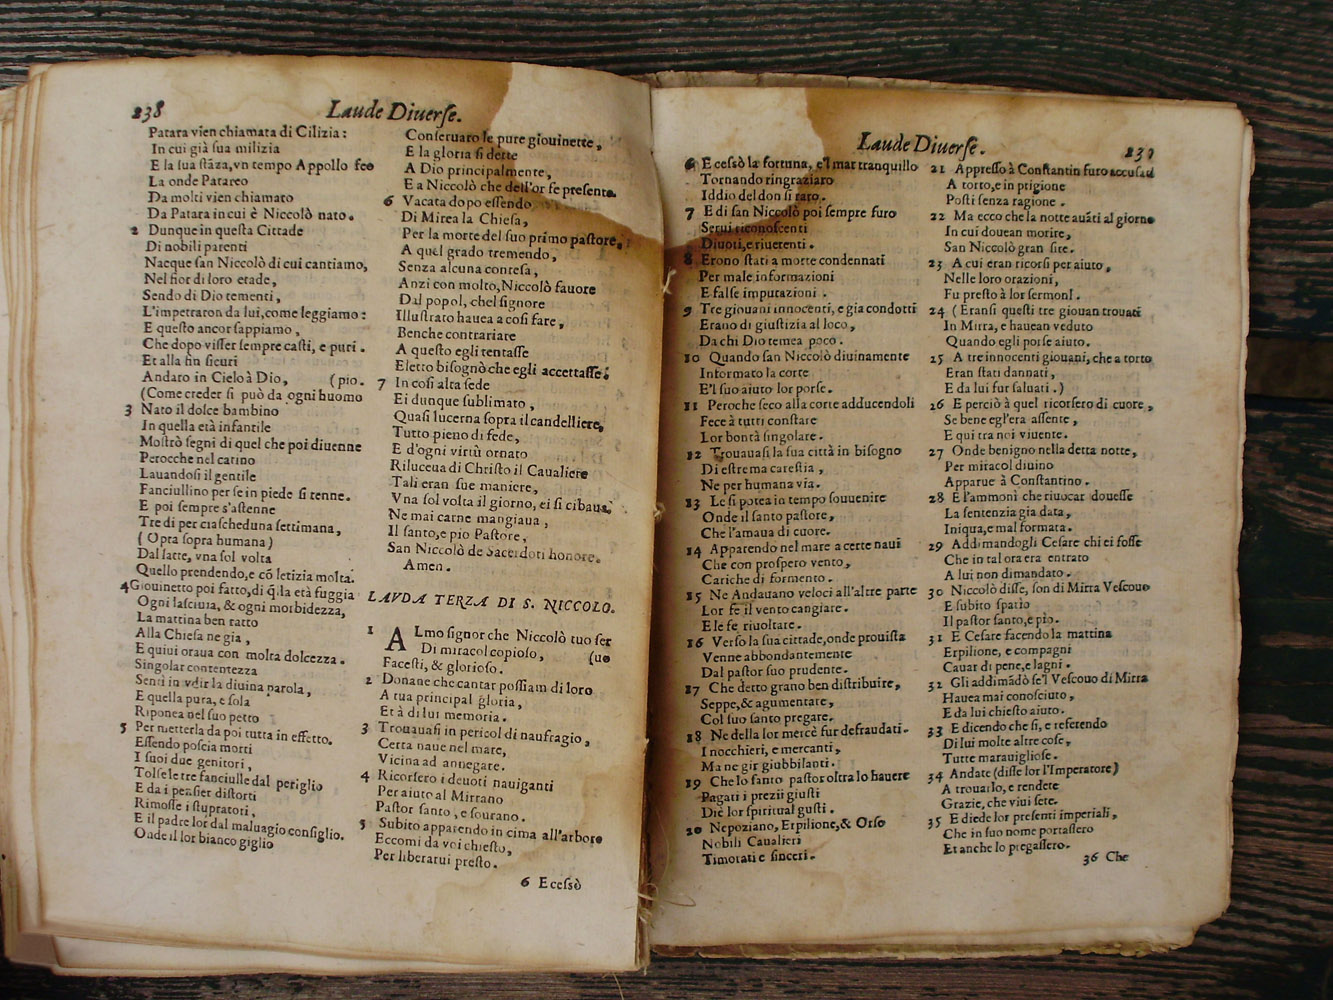 238
Laude Diuerse.
Patara vien chiamata di Cilizia:
In cui già sua milizia
E la sua stãza, vn tempo Appollo feo
La onde Patareo
Da molti vien chiamato
Da Patara in cui è Niccolò nato.
2 Dunque in questa Cittade
Di nobili parenti
Nacque san Niccolò di cui cantiamo,
Nel fior di loro etade,
Sendo di Dio tementi,
L'impetraron da lui, come leggiamo:
E questo ancor sappiamo,
Che dopo visser sempre casti, e puri.
Et alla fin sicuri
Andaro in Cielo à Dio, (pio.
(Come creder si può da ogni huomo
3 Nato il dolce bambino
In quella età infantile
Mostrò segni di quel che poi diuenne
Perocche nel catino
Lauandosi il gentile
Fanciullino per se in piede si tenne.
E poi sempre s'astenne
Tre di per ciascheduna settimana,
(Opra sopra humana)
Dal latte, vna sol volta
Quello prendendo, e cõ letizia molta.
4 Giouinetto poi fatto, di q̃lla età fuggia
Ogni lasciuia, & ogni morbidezza,
La mattina ben ratto
Alla Chiesa ne gia,
E quiui oraua con molta dolcezza.
Singolar contentezza
Sentì in vdir la diuina parola,
E quella pura, e sola
Riponea nel suo petto
5 Per metterla da poi tutta in effetto.
Essendo poscia morti
I suoi due genitori,
Tolse le tre fanciulle dal periglio
E da i pensier distorti
Rimosse i stupratori,
E il padre lor dal maluagio consiglio.
Onde il lor bianco giglio
Conseruaro le pure giouinette,
E la gloria si dette
A Dio principalmente,
E a Niccolò che dell'or se presente.
6 Vacata dopo essendo
Di Mirea la Chiesa,
Per la morte del suo primo pastore,
A quel grado tremendo,
Senza alcuna contesa,
Anzi con molto, Niccolò fauore
Dal popol, chel signore
Illustrato hauea a così fare,
Benche contrariare
A questo egli tentasse
Eletto bisognò che egli accettasse.
7 In così alta sede
Ei dunque sublimato,
Quasi lucerna sopra il candelliere,
Tutto pieno di fede,
E d'ogni virtù ornato
Riluceua di Christo il Caualiere
Tali eran sue maniere,
Vna sol volta il giorno, ei si cibaua,
Ne mai carne mangiaua,
Il santo, e pio Pastore,
San Niccolò de Sacerdoti honore.
Amen.
LAVDA TERZA DI S. NICCOLO.
1 ALmo signor che Niccolò tuo ser
Di miracol copioso, (uo
Facesti, & glorioso.
2 Donane che cantar possiam di loro
A tua principal gloria,
Et à di lui memoria.
3 Trouauasi in pericol di naufragio,
Certa naue nel mare,
Vicina ad annegare.
4 Ricorsero i deuoti nauiganti
Per aiuto al Mirrano
Pastor santo, e sourano.
5 Subito apparendo in cima all'arbore
Eccomi da voi chiesto,
Per liberarui presto.
6 E cessò
Laude Diuerse.
239
6 E cessò la fortuna, e'l mar tranquillo
Tornando ringraziaro
Iddio del don si raro.
7 E di san Niccolò poi sempre furo
Serui riconoscenti
Diuoti, e riuerenti.
8 Erono stati a morte condennati
Per male informazioni
E false imputazioni.
9 Tre giouani innocenti, e gia condotti
Erano di giustizia al loco,
Da chi Dio temea poco.
10 Quando san Niccolò diuinamente
Informato la corte
E'l suo aiuto lor porse.
11 Peroche seco alla corte adducendoli
Fece à tutti constare
Lor bontà singolare.
12 Trouauasi la sua città in bisogno
Di estrema carestia,
Ne per humana via.
13 Le si potea in tempo souuenire
Onde il santo pastore,
Che l'amaua di cuore.
14 Apparendo nel mare a certe naui
Che con prospero vento,
Cariche di formento.
15 Ne Andauano veloci all'altre parte
Lor fè il vento cangiare.
E le fe riuoltare.
16 Verso la sua cittade, onde prouista
Venne abbondantemente
Dal pastor suo prudente.
17 Che detto grano ben distribuire,
Seppe, & agumentare,
Col suo santo pregare.
18 Ne della lor mercè fur defraudati.
I nocchieri, e mercanti,
Ma ne gir giubbilanti.
19 Che lo santo pastor oltra lo hauere
Pagati i prezii giusti
Diè lor spiritual gusti.
20 Nepoziano, Erpilione, & Orso
Nobili Caualieri
Timorati e sinceri.
21 Appresso à Constantin furo accusati
A torto, e in prigione
Posti senza ragione.
22 Ma ecco che la notte auãti al giorno
In cui douean morire,
San Niccolò gran sire.
23 A cui eran ricorsi per aiuto,
Nelle loro orazioni,
Fu presto à lor sermoni.
24 (Eransi questi tre giouan trouati
In Mirra, e hauean veduto
Quando egli porse aiuto.
25 A tre innocenti giouani, che a torto
Eran stati dannati,
E da lui fur saluati.)
26 E perciò à quel ricorsero di cuore,
Se bene egl'era assente,
E qui tra noi viuente.
27 Onde benigno nella detta notte,
Per miracol diuino
Apparue à Constantino.
28 E l'ammonì che riuocar douesse
La sentenzia gia data,
Iniqua, e mal formata.
29 Addimandogli Cesare chi ei fosse
Che in tal ora era entrato
A lui non dimandato.
30 Niccolò disse, son di Mirra Vescouo
E subito spatio
Il pastor santo, e pio.
31 E Cesare facendo la mattina
Erpilione, e compagni
Cauar di pene, e lagni.
32 Gli addimãdò se'l Vescouo di Mirra
Hauea mai conosciuto,
E da lui chiesto aiuto.
33 E dicendo che si, e referendo
Di lui molte altre cose,
Tutte marauigliose.
34 Andate (disse lor l'Imperatore)
A trouarlo, e rendete
Grazie, che viui sete.
35 E diede lor presenti imperiali,
Che in suo nome portassero
Et anche lo pregassero.
36 Che